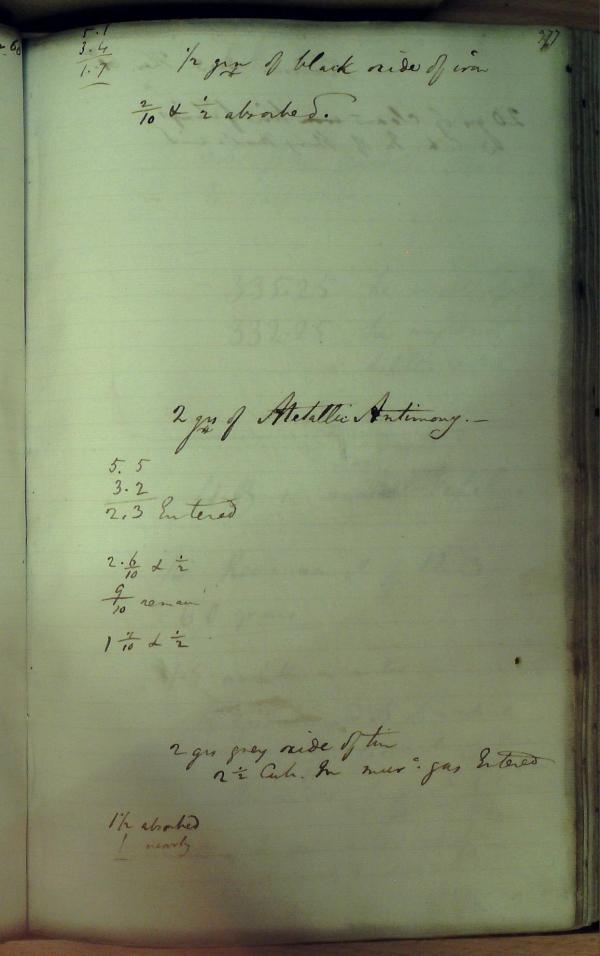 277
5.1
3.4
1.7
1/2 grn of black oxide of iron
2/10 & 1/2 absorbed.
2 grs of Metallic Antimony.—
5.5
3.2
2.3 Entered
2.6/10 & 1/2
9/10 remain
1 7/10 & 1/2
2 grs grey oxide of tin
2 1/2 Cub. In mur.c gas Entered
1 1/2 absorbed
1 nearly